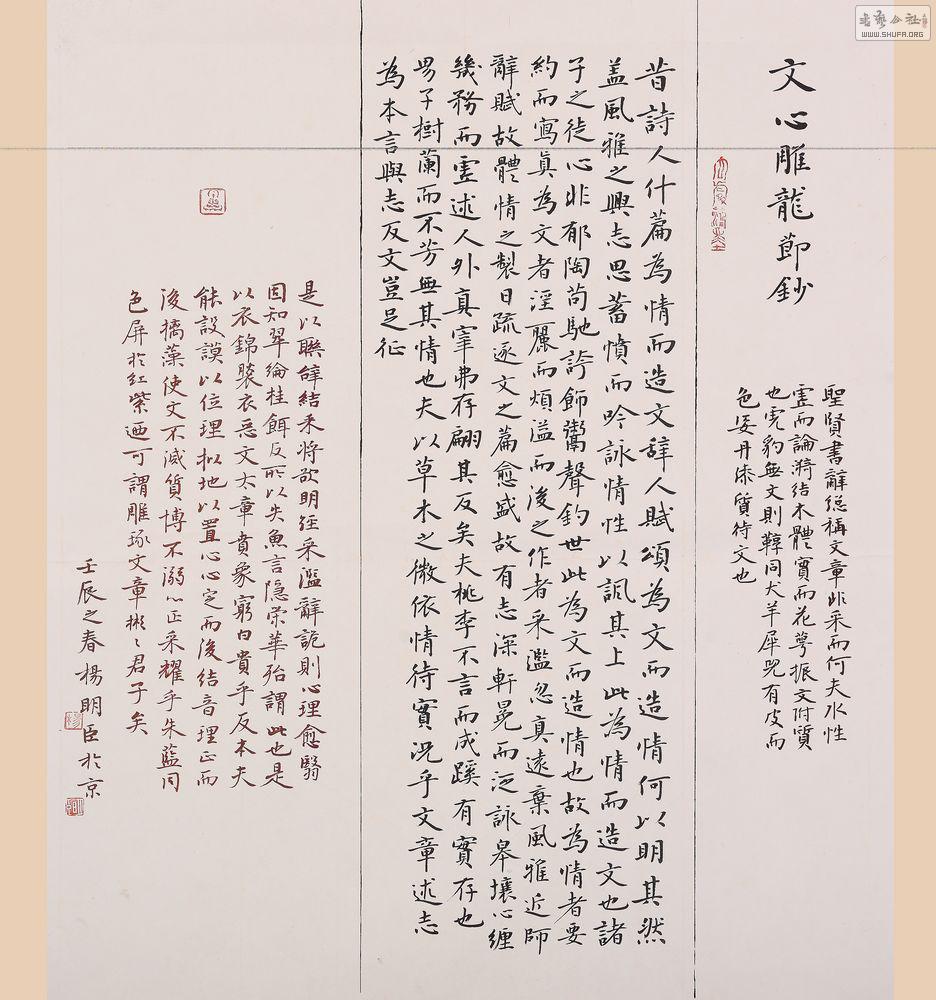 文心雕龍節鈔
聖賢書辭總稱文章非采而何夫水性
虛而淪漪結木體實而花萼振文附質
也虎豹無文則鞟同犬羊犀兕有皮而
色姿丹漆質待文也
昔詩人什篇為情而造文辞人賦頌為文而造情何以明其然
盖風雅之興志思蓄憤而吟詠情性以諷其上此為情而造文也諸
子之徒心非郁陶苟馳誇飾鬻聲釣世此為文而造情也故為情者要
約而寫真為文者淫麗而煩溢而後之作者采濫忽真遠棄風雅近師
辭賦故體情之製日疏逐文之篇愈盛故有志深軒冕而泛詠皋壤心纏
幾務而虛述人外真宰弗存翩其反矣夫桃李不言而成蹊有實存也
男子樹蘭而不芳無其情也夫以草木之微依情待實況乎文章述志
為本言與志反文豈足征
是以聯辭結采將欲明經采濫辭詭則心理愈翳
固知翠綸桂餌反所以失魚言隱榮華殆謂此也是
以衣錦褧衣惡文太章賁象窮白貴乎反本夫
能設謨以位理拟地以置心心定而後結音理正而
後摛藻使文不滅質博不溺心正采耀乎朱藍间
色屏於红紫迺可謂雕琢文章彬々君子矣
壬辰之春楊明臣於京
書藝公社
WWW.SHUFA.ORG